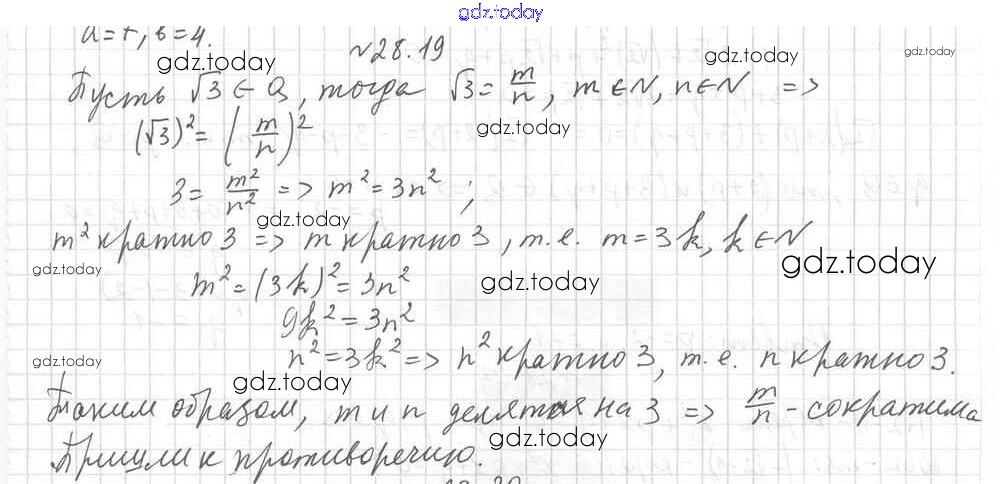 gdz.today
a=7, b=4.
№28.19
gdz.today
gdz.today
gdz.today
Пусть √3 ∈ Q, тогда √3 = m/n, m ∈ N, n ∈ N =>
(√3)² = (m/n)²
gdz.today
3 = m²/n² => m² = 3n² ;
gdz.today
m² кратно 3 => m кратно 3, т.е. m = 3k, k ∈ N
gdz.today
gdz.today
m² = (3k)² = 3n²
gdz.today
9k² = 3n²
n² = 3k² => n² кратно 3, т.е. n кратно 3.
gdz.today
gdz.today
Таким образом, m и n делятся на 3 => m/n - сократима
gdz.today
Пришли к противоречию.